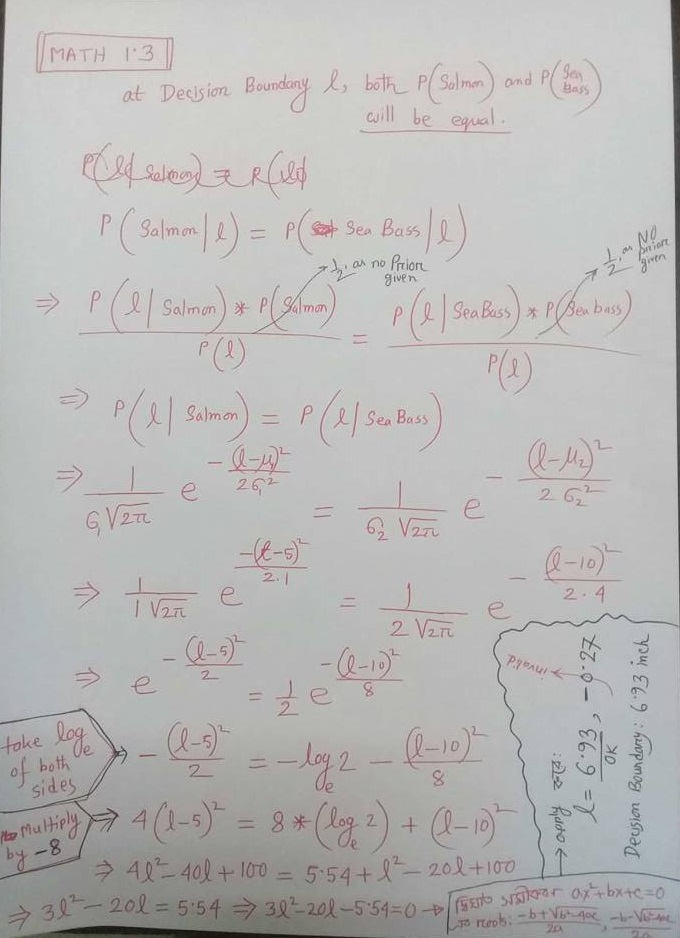 MATH 1.3
at Decision Boundary l, both P(Salmon) and P(Sea Bass)
will be equal.
P(Salmon|l) = P(Sea Bass|l)
1/2, as no Prior given
1/2, as NO prior given
⇒ P(l|Salmon) * P(Salmon) / P(l) = P(l|SeaBass) * P(Seabass) / P(l)
⇒ P(l|Salmon) = P(l|SeaBass)
⇒ 1/(σ₁√2π) e^(-(l-μ₁)²/2σ₁²) = 1/(σ₂√2π) e^(-(l-μ₂)²/2σ₂²)
⇒ 1/(1√2π) e^(-(l-5)²/2.1) = 1/(2√2π) e^(-(l-10)²/2.4)
⇒ e^(-(l-5)²/2) = 1/2 e^(-(l-10)²/8)
take logₑ of both sides
-(l-5)²/2 = -logₑ2 - (l-10)²/8
Multiply by -8
⇒ 4(l-5)² = 8*(logₑ2) + (l-10)²
⇒ 4l²-40l+100 = 5.54+l²-20l+100
⇒ 3l²-20l = 5.54 ⇒ 3l²-20l-5.54=0 →
দ্বিঘাত সমীকরণ ax²+bx+c=0
roots: (-b+√b²-4ac)/2a, (-b-√b²-4ac)/2a
→ apply করে:
l = 6.93, -0.27
OK
invalid
Decision Boundary: 6.93 inch